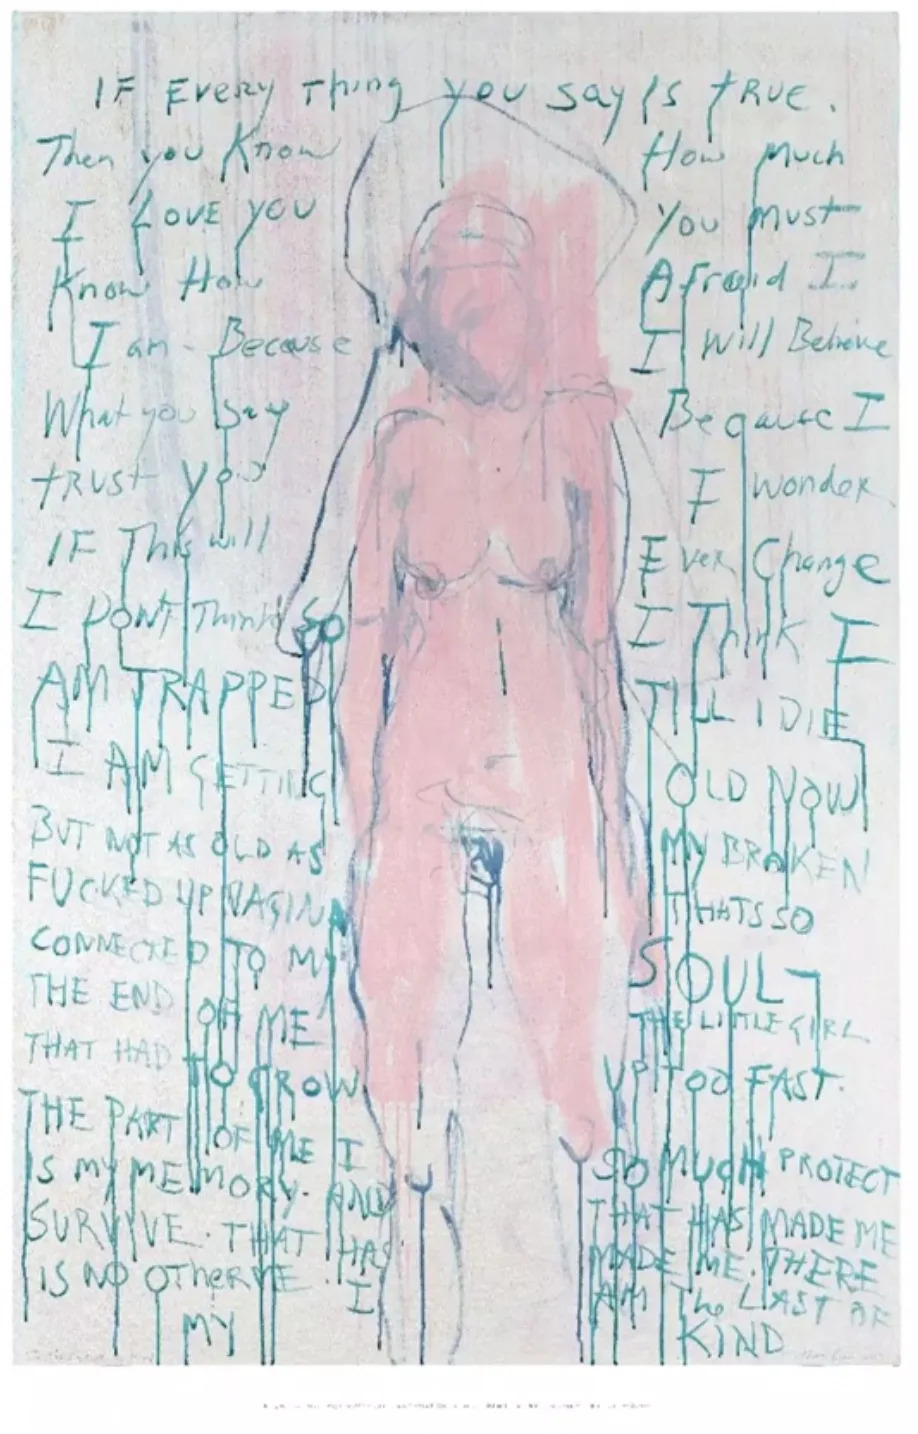 IF EVERY Thing you say Is tRUE.
Then you Know How Much
I LOVE you You Must
Know How Afraid I
I am - Because I Will Believe
What you say Because I
tRUST you I wonder
IF This will Ever Change
I DON'T Think So I Think I
AM TRAPPED TILL I DIE
I AM GETTING OLD NOW
BUT NOT AS OLD AS MY BROKEN
FUCKED UP VAGINA THATS SO
CONNECTED TO MY SOUL
THE END OF ME THE LITTLE GIRL
THAT HAD TO GROW UP TOO FAST.
THE PART OF ME I SO MUCH PROTECT
IS MY MEMORY. AND THAT HAS MADE ME
SURVIVE. THAT HAS MADE ME. THERE
IS NO OTHER ME. I AM The LAST OF
MY KIND